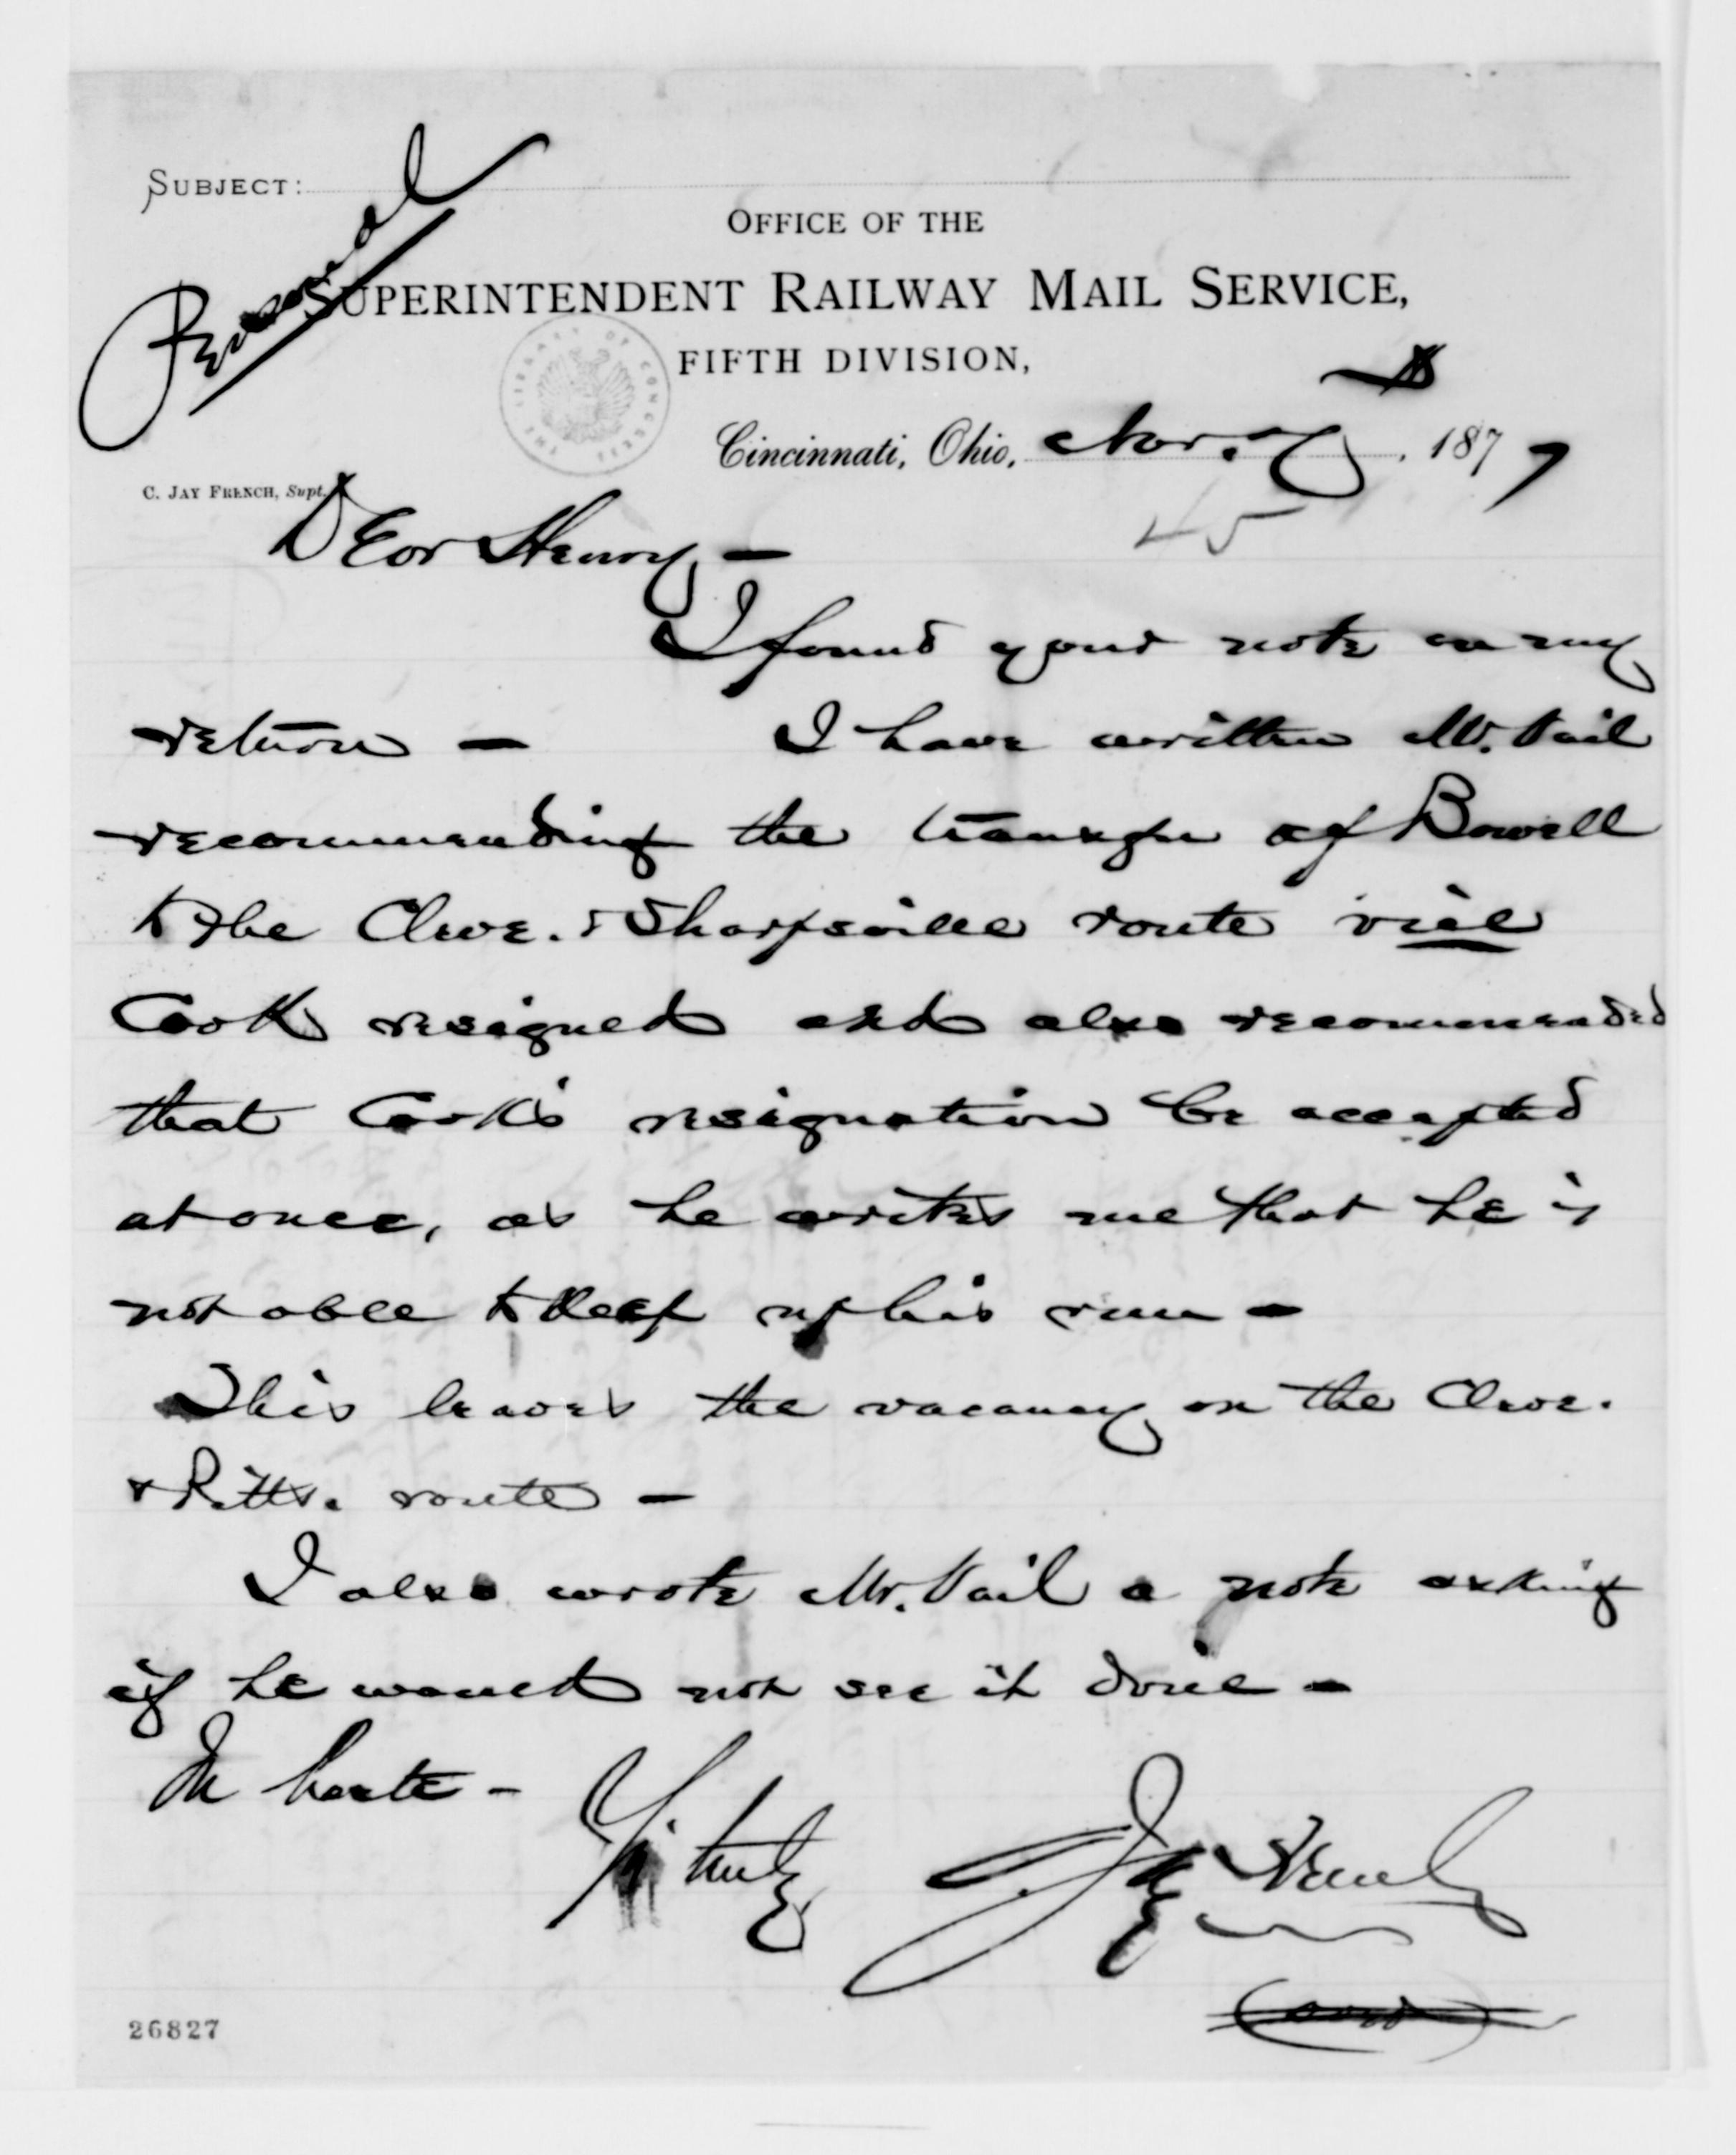 SUBJECT:
Personal
OFFICE OF THE
SUPERINTENDENT RAILWAY MAIL SERVICE,
FIFTH DIVISION,
Cincinnati, Ohio, Nov. 7, 1877
45
C. JAY FRENCH, Supt.
THE LIBRARY OF CONGRESS
Dear Henry —
I found your note on my
return — I have written Mr. Vail
recommending the transfer of Bowell
to the Cleve. & Sharpsville route vice
Cook resigned and also recommended
that Cook's resignation be accepted
at once, as he writes me that he is
not able to keep up his run —
This leaves the vacancy on the Cleve.
& Pitts. route —
I also wrote Mr. Vail a note asking
if he would not see it done —
In haste —
Yrs truly Jay French
(over)
26827